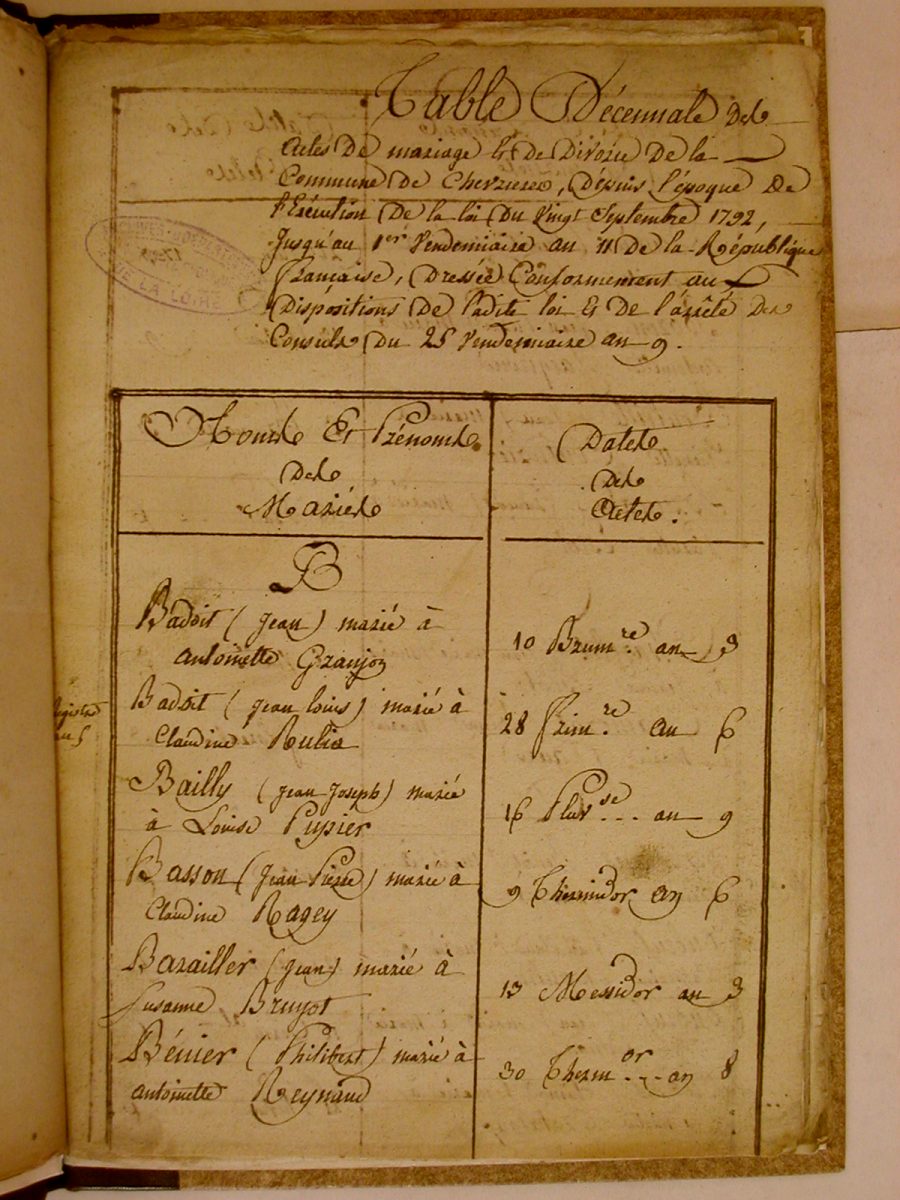 Table Décennale des
actes De mariage Et De Divorce De la
Commune De Cherrier, Dépuis l'époque De
l'Exécution De la loi Du Vingt Septembre 1792,
Jusqu'au 1er Vendemiaire an 11 De la République
française, Dressée Conformement au
Dispositions De ladite loi Et De l'arrêté Des
Consuls Du 25 Vendemiaire an 9.
Noms Et Prénoms
Des
Mariés
Dates
Des
Actes.
B
Badoit (Jean) marié à
antoinette Granjon
10 Brumre. an 3
Badoit (jean louis) marié à
Claudine Rulie
28 Frimre. an 6
Bailly (jean Joseph) marié
à Louise Pupier
16 Pluvse... an 9
Basson (Jean Pierre) marié à
Claudine Ragey
9 Thermidor an 6
Barailler (jean) marié à
Susanne Bruyot
13 Messidor an 3
Bénier (Philibert) marié à
antoinette Reynaud
30 Thermor... an 8
DE LA LOIRE